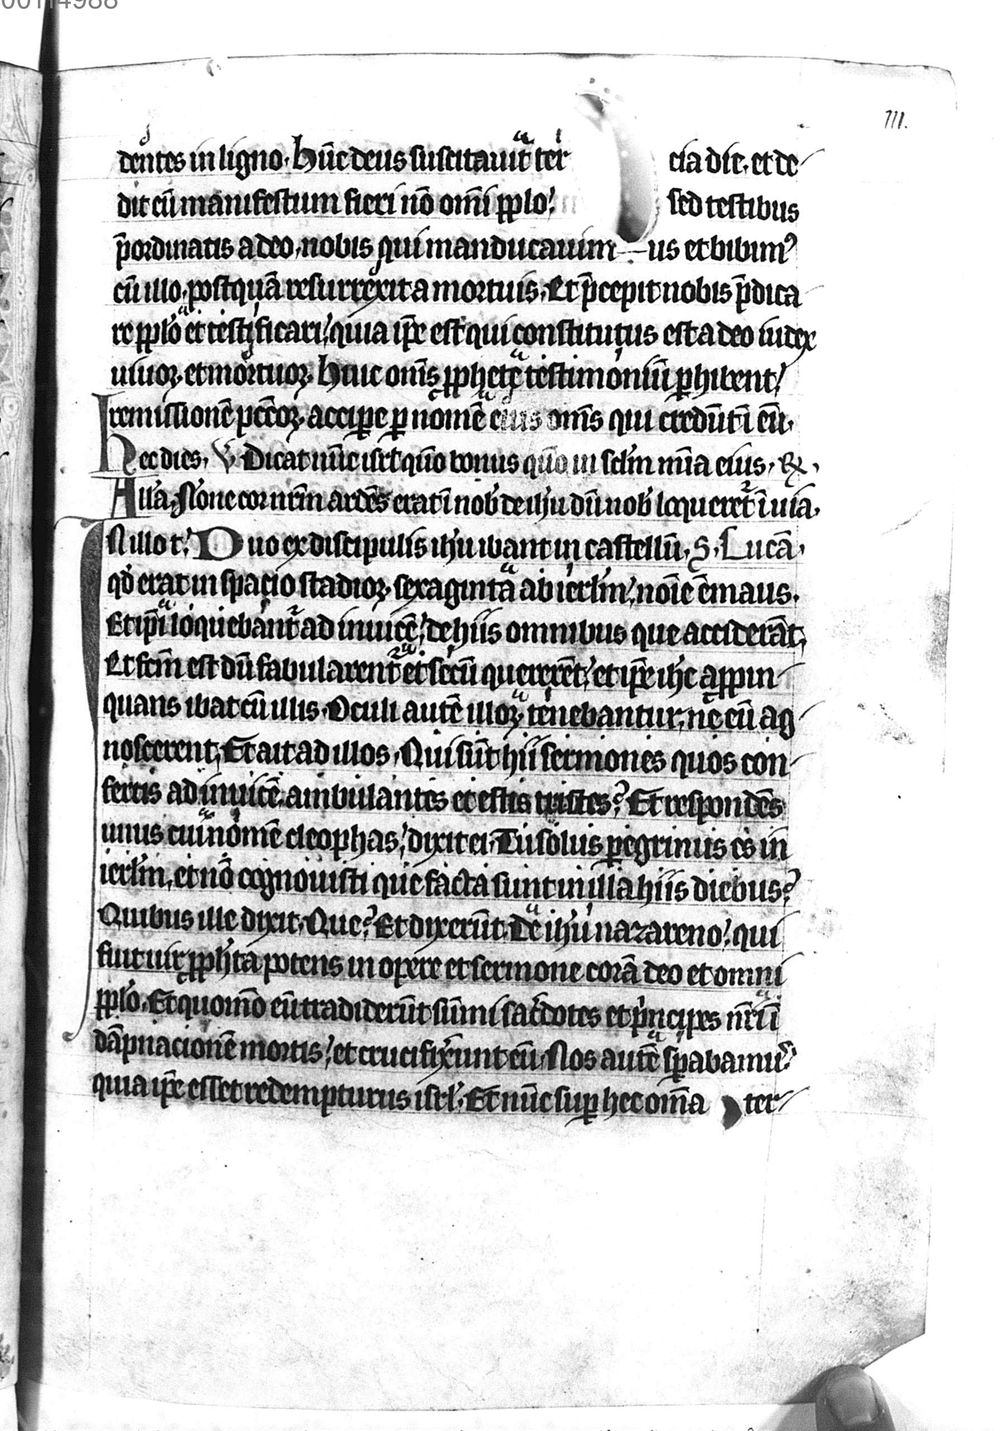 00114988
III.
dentes in ligno. Hūc deus suscitauit ter cia die. et de
dit eū manifestum fieri nō om̄i pplo! sed testibus
p̄ordinatis a deo. nobis qui manducauim us et bibim⁹
cū illo. postquā resurrexit a mortuis. Et p̄cepit nobis p̄dica
re pplo et testificari. quia ip̄e est qui constitutus est a deo iudex
uiuoꝝ. et mortuoꝝ. Huic om̄s ꝓphete testimoniū ꝑhibent!
remissionē pccōꝝ. accipe ꝑ nomē eius om̄s qui credūt ī eū.
Hec dies. V Dicat nūc isrl' qūo bonus quō in sclm̄ mīa eius. R̷.
All'a. Nōne cor nr̄m ardēs erat ī nob' de ih̄u dū nob' loqueret ī uia.
In illo t'. Duo ex discipulis ih̄u ibant in castellū. S. Lucā.
qd' erat in spacio stadioꝝ. sexaginta ab ierl'm. noīe ēmaus.
Et ip̄i loquebant ad inuicē. de hiis omnibus que acciderāt.
Et fcm̄ est dū fabularent et secū quererēt. et ip̄e ih̄c appin
quans ibat cū illis. Oculi autē illoꝝ tenebantur. ne eū ag
noscerent. Et ait ad illos. Qui sūt hii sermones quos con
fertis ad inuicē ambulantes et estis tristes? Et respondēs
unus cui nomē cleophas. dixit ei. Tu solus ꝑegrinus es in
ierl'm. et nō cognouisti que facta sunt in illa hiis diebus?
Quibus ille dixit. Que? Et dixerūt. De ih̄u nazareno. qui
fuit uir ꝓph'ta potens in opere et sermone corā deo et omni
pplo. Et quom̄o eū tradiderūt sūmi sac̄dotes et p'ncipes nr̄i ī
dāpnacionē mortis. et crucifixerunt eū. Nos autē sꝑabamus
quia ip̄e esset redempturus isrl'. Et nūc suꝑ hec om̄a ter